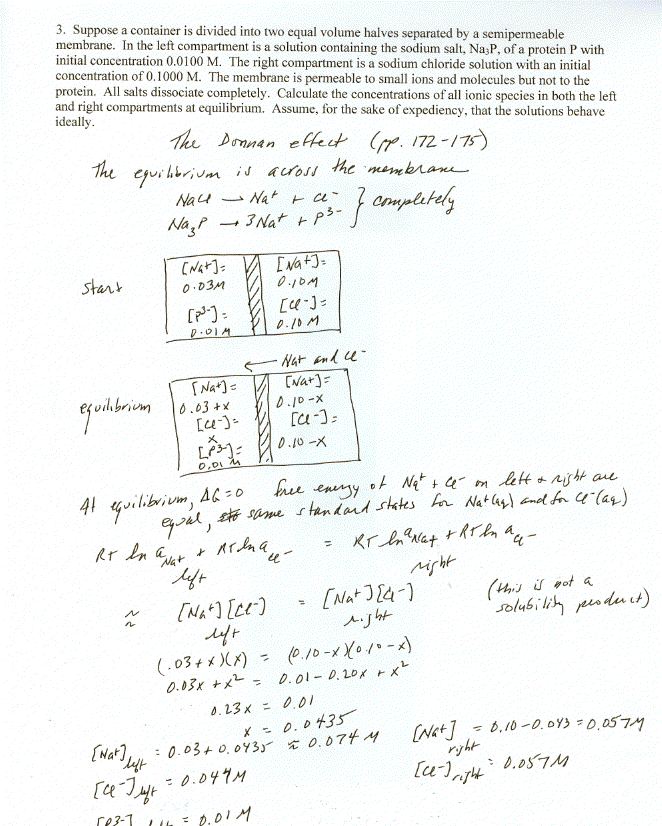 3. Suppose a container is divided into two equal volume halves separated by a semipermeable
membrane. In the left compartment is a solution containing the sodium salt, Na₃P, of a protein P with
initial concentration 0.0100 M. The right compartment is a sodium chloride solution with an initial
concentration of 0.1000 M. The membrane is permeable to small ions and molecules but not to the
protein. All salts dissociate completely. Calculate the concentrations of all ionic species in both the left
and right compartments at equilibrium. Assume, for the sake of expediency, that the solutions behave
ideally.
The Donnan effect (pp. 172-175)
The equilibrium is across the membrane
NaCl → Na⁺ + Cl⁻ } completely
Na₃P → 3Na⁺ + P³⁻
start
[Na⁺]= [Na⁺]=
0.03M 0.10M
[P³⁻]= [Cl⁻]=
0.01M 0.10 M
← Na⁺ and Cl⁻
equilibrium
[Na⁺]= [Na⁺]=
0.03+x 0.10-x
[Cl⁻]= [Cl⁻]=
x 0.10-x
[P³⁻]=
0.01 M
At equilibrium, ΔG=0 free energy of Na⁺ + Cl⁻ on left & right are
equal, same standard states for Na⁺(aq) and for Cl⁻(aq)
RT ln a Na⁺ + RT ln a Cl⁻ = RT ln a Na⁺ + RT ln a Cl⁻
left right
≈ [Na⁺][Cl⁻] = [Na⁺][Cl⁻] (this is not a
left right solubility product)
(.03+x)(x) = (0.10-x)(0.10-x)
0.03x + x² = 0.01 - 0.20x + x²
0.23x = 0.01
x = 0.0435
[Na⁺]left = 0.03+0.0435 ≈ 0.074 M [Na⁺]right = 0.10-0.043 = 0.057M
[Cl⁻]left = 0.044M [Cl⁻]right = 0.057M
[P³⁻] = 0.01M